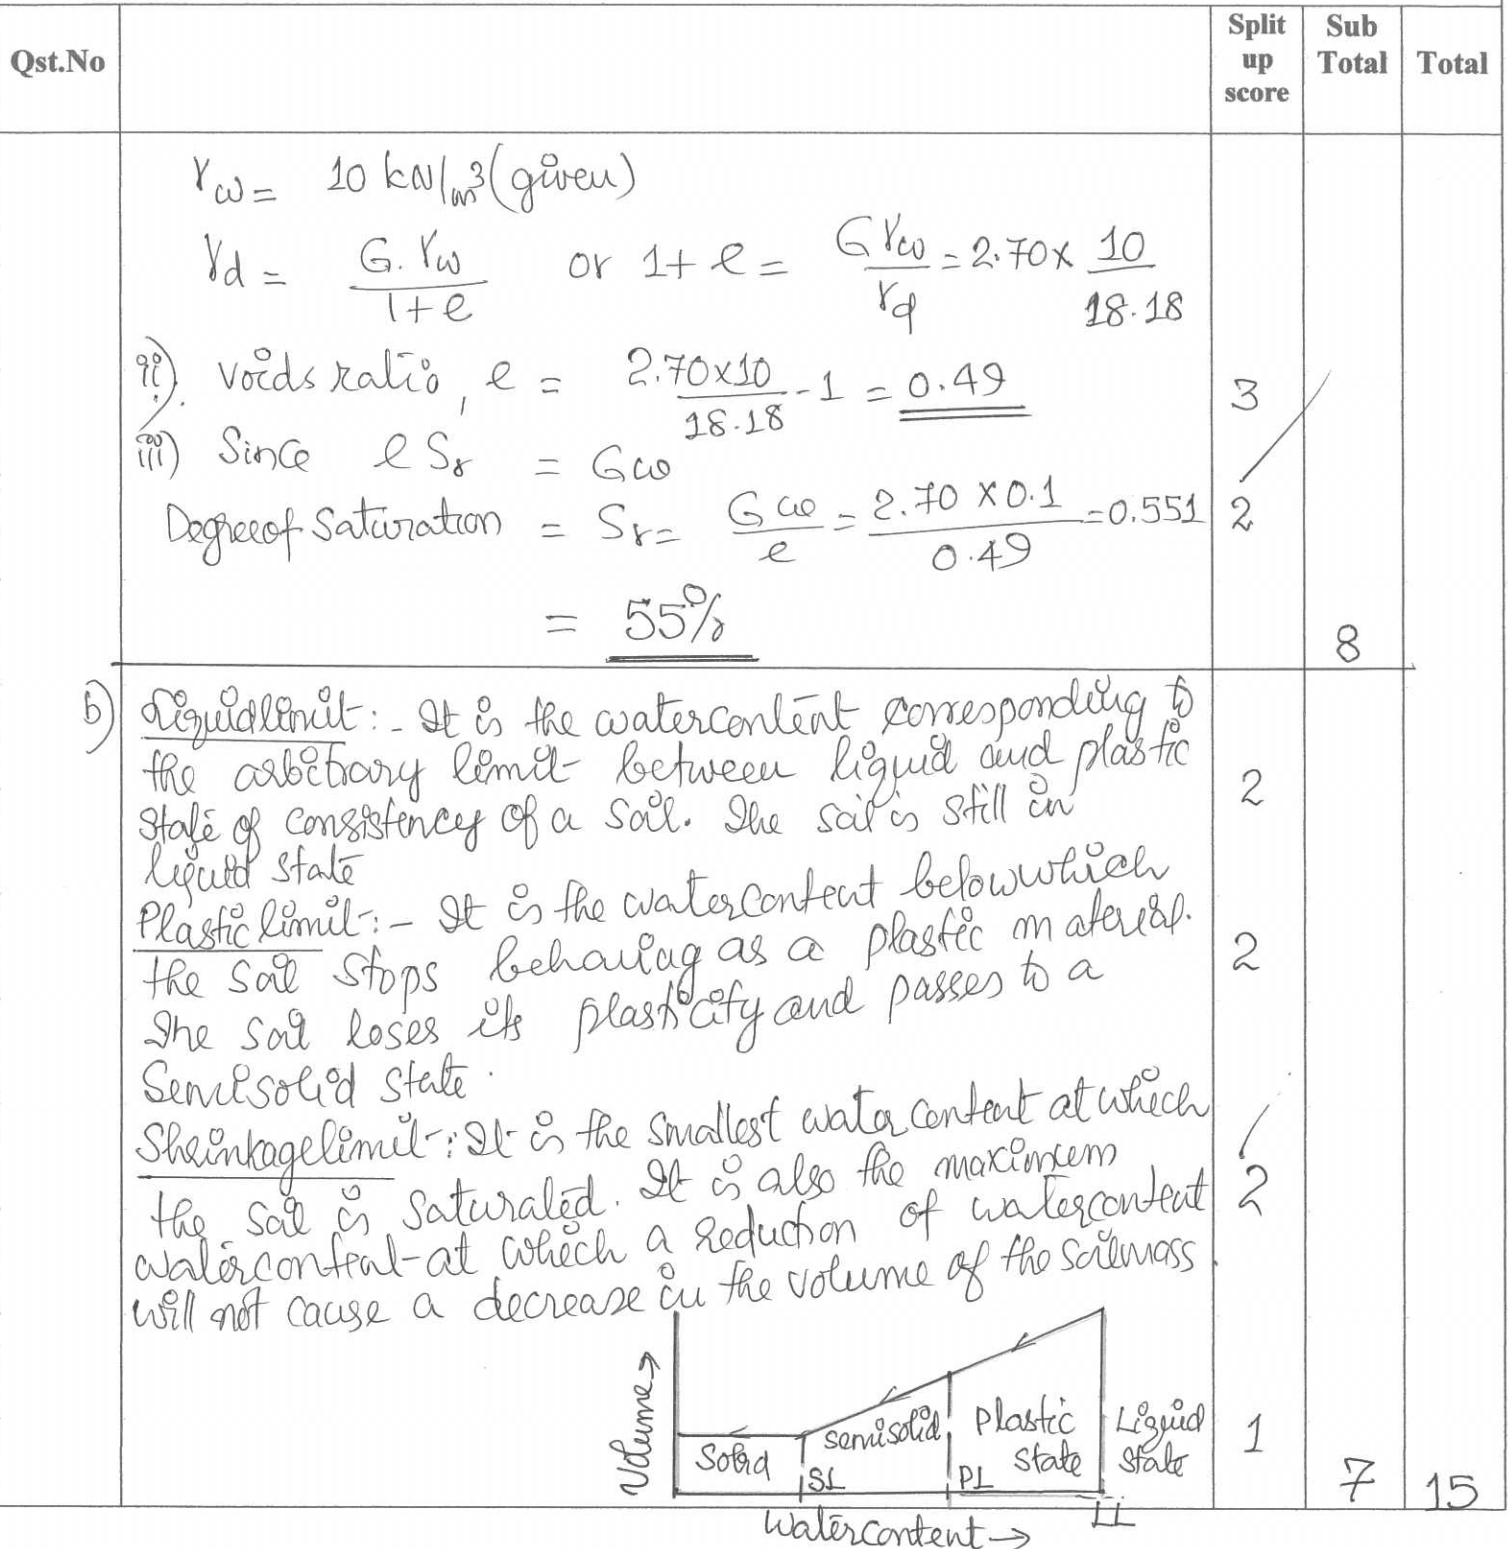 Qst.No Split up score Sub Total Total
γw = 10 kN/m3 (given)
γd = G.γw / 1+e or 1+e = Gγw / γd = 2.70 x 10 / 18.18
ii) voids ratio, e = 2.70x10 / 18.18 - 1 = 0.49 3
iii) Since e Sr = Gω
Degree of Saturation = Sr = Gω / e = 2.70 x 0.1 / 0.49 = 0.551 2
= 55% 8
b) Liquidlimit:- It is the watercontent corresponding to
the arbitrary limit between liquid and plastic 2
state of consistency of a soil. The soil is still in
liquid state
Plastic limit:- It is the watercontent below which
the soil stops behaving as a plastic material. 2
The soil loses its plasticity and passes to a
Semisolid state.
Shrinkagelimit:- It is the smallest water content at which
the soil is saturated. It is also the maximum 2
watercontent at which a reduction of watercontent
will not cause a decrease in the volume of the soilmass.
Volume→
Solid semisolid Plastic state Liquid state 1
SL PL LL 7 15
Watercontent→